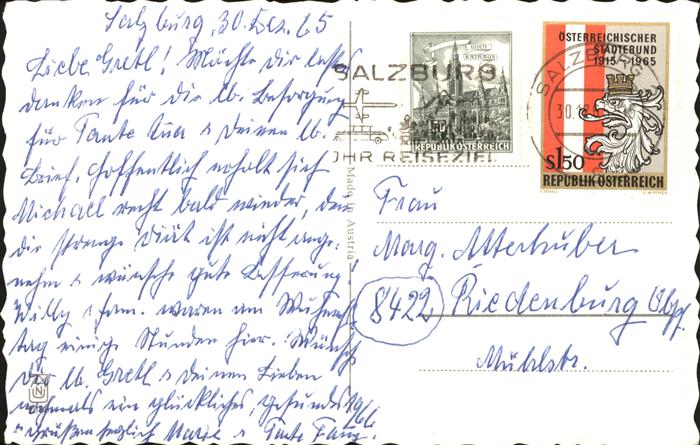 Salzburg, 30. Dez. 65
Liebe Gretl! Möchte dir bestens
danken für die lb. Besorgung
für Tante & deinen lb.
Brief. Hoffentlich erholt sich
Michael recht bald wieder, denn
die strenge Diät ist nicht ange-
nehm & wünsche gute Besserung!
Willy & Fam. waren am Weihnachts-
tag einige Stunden hier. Wünsche
dir lb. Gretl & deinen Lieben
nochmals ein glückliches, gesundes 1966
& grüßen herzlich Marie & Tante Fanny.
WIEN
RATHAUS
SALZBURG
IHR REISEZIEL
REPUBLIK ÖSTERREICH
ÖSTERREICHISCHER
STÄDTEBUND
1915-1965
SALZBURG
30.12.
s1.50
REPUBLIK ÖSTERREICH
Made in Austria
Frau
Marg. Atterhuber
8422 Riedenburg Obpf.
Mühlstr.